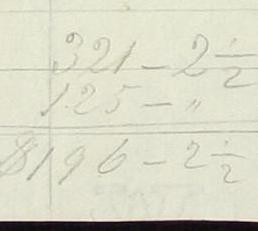 321 – 2 ½
125 – "
$196 – 2 ½